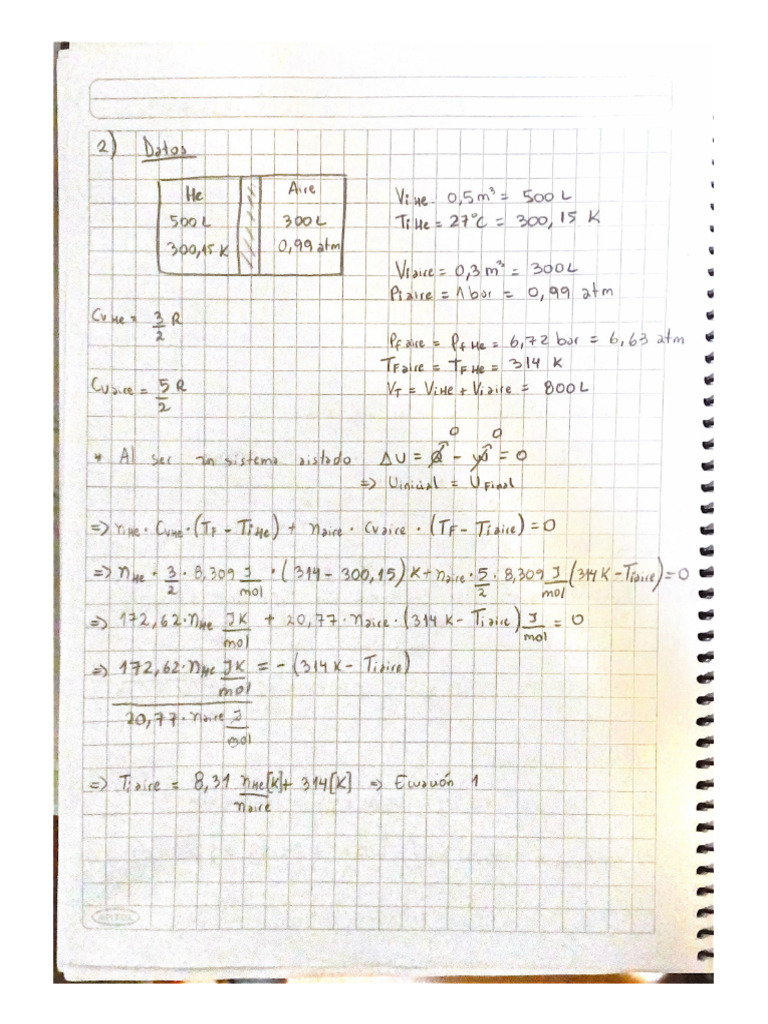 2) Datos
He Aire
500 L 300 L
300,15 K 0,99 atm
Vi He = 0,5 m³ = 500 L
Ti He = 27°C = 300,15 K
Vi aire = 0,3 m³ = 300 L
Pi aire = 1 bar = 0,99 atm
Cv He = 3/2 R
Cv aire = 5/2 R
Pf aire = Pf He = 6,72 bar = 6,63 atm
TF aire = TF He = 314 K
VT = Vi He + Vi aire = 800 L
* Al ser un sistema aislado ΔU = Q⁰ - W⁰ = 0
=> U inicial = U Final
=> nHe · CvHe · (TF - Ti He) + naire · Cvaire · (TF - Tiaire) = 0
=> nHe · 3/2 · 8,309 J/mol · (314 - 300,15) K + naire · 5/2 · 8,309 J/mol (314 K - Tiaire) = 0
=> 172,62 · nHe JK/mol + 20,77 · naire · (314 K - Tiaire) J/mol = 0
=> 172,62 · nHe JK/mol = - (314 K - Tiaire)
20,77 · naire J/mol
=> Tiaire = 8,31 nHe/naire [K] + 314 [K] => Ecuación 1